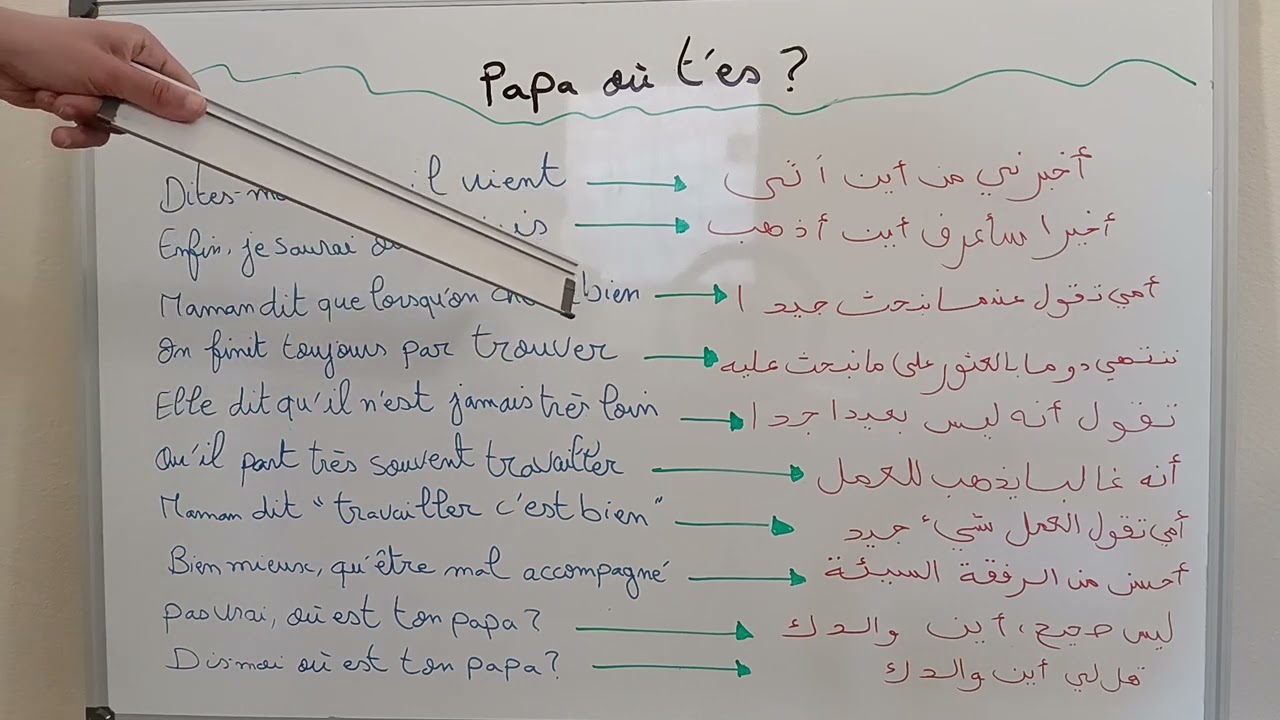 Papa où t'es ?
Dites- il vient → أخبرني من أين أتى
Enfin, je saurai → أخيرا سأعرف أين أذهب
Maman dit que lorsqu'on bien → أمي تقول عندما نبحث جيدا
On finit toujours par trouver → ننتهي دوما بالعثور على ما نبحث عليه
Elle dit qu'il n'est jamais très loin → تقول أنه ليس بعيدا جدا
Qu'il part très souvent travailler → أنه غالبا يذهب للعمل
Maman dit "travailler c'est bien" → أمي تقول العمل شيء جيد
Bien mieux, qu'être mal accompagné → أحسن من الرفقة السيئة
pas vrai, où est ton papa ? → ليس صحيح، أين والدك
Dis moi où est ton papa ? → قل لي أين والدك